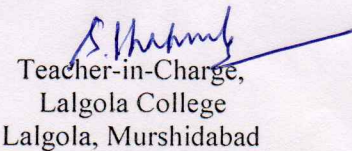 Teacher-in-Charge,
Lalgola College
Lalgola, Murshidabad